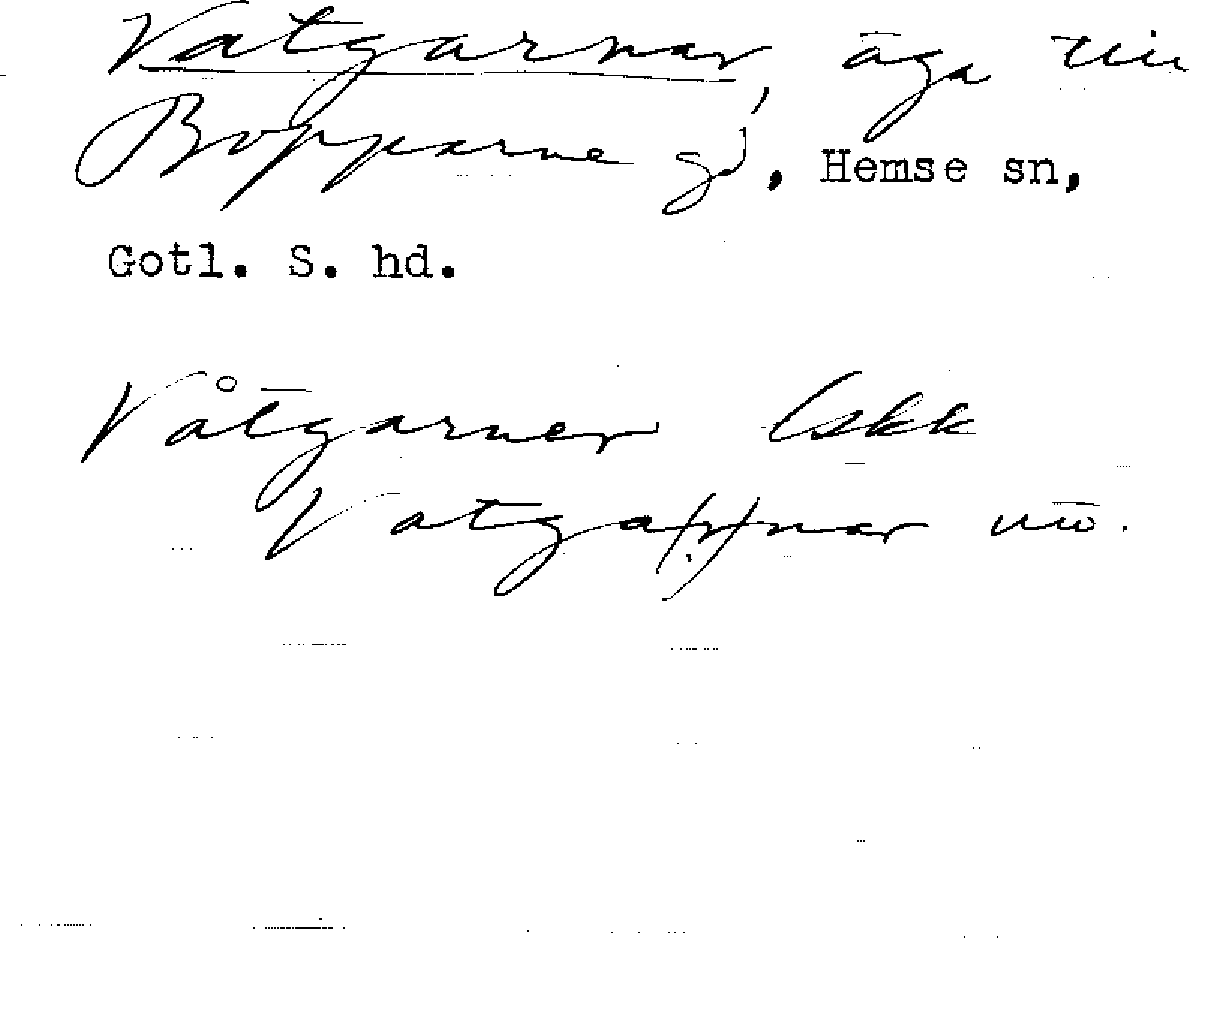 Vatgarnar, äga till
Bopparne gd, Hemse sn,
Gotl. S. hd.
Våtgarner Iskk
Vatgappnar